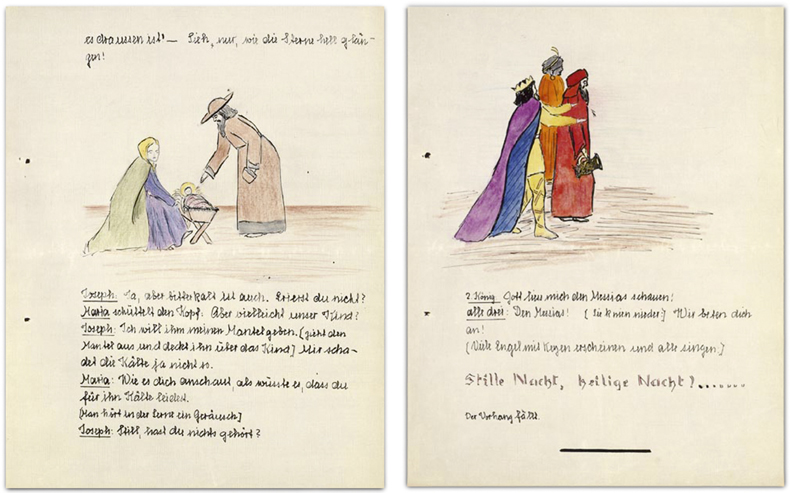 es draussen ist! — Sieh, nur, wie die Sterne hell glän-
zen!
Joseph: Ja, aber bitterkalt ist auch. Frierst du nicht?
Maria schüttelt den Kopf. Aber vielleicht unser Kind?
Joseph: Ich will ihm meinen Mantel geben. (zieht den
Mantel aus und deckt ihn über das Kind) Mir scha-
det die Kälte ja nichts.
Maria: Wie es dich anschaut, als wüsste es, dass du
für ihn Kälte leidest.
(Man hört in der Ferne ein Geräusch)
Joseph: Still, hast du nichts gehört?
2. König: Gott liess mich den Messias schauen!
alle drei: Den Messias! (Sie knien nieder.) Wir beten dich
an!
(Viele Engel mit Kerzen erscheinen und alle singen.)
Stille Nacht, heilige Nacht!.......
Der Vorhang fällt.